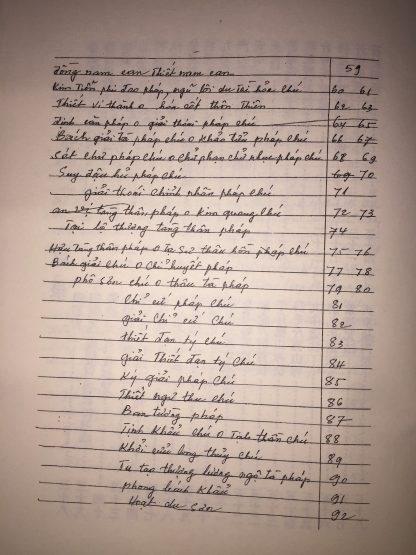 Đồng nam can Thiết nam can 59
Kim Tiễn phi đao pháp, ngũ lôi du Tai hỏa chú 60 61
Thiết vi thành o hóa cốt thôn Thiên 62 63
Đinh căn pháp o giải thoái pháp chú 64 65
Bách giải tà pháp chú o Khảo tiễn pháp chú 66 67
Sát chư pháp chú o chư phạn chư nhục pháp chú 68 69
Suy đậu hủ pháp chú 69 70
giải thoái Chỉnh nhân pháp chú 71
an vị tàng thân pháp o Kim quang chú 72 73
Tại lộ thượng tàng thân pháp 74
tàng thân pháp o Tạ Sư thâu hồn pháp chú 75 76
Bách giải chú o Chỉ huyết pháp 77 78
phó sên chú o thâu tà pháp 79 80
Chỉ cứ pháp chú 81
giải Chỉ cứ Chú 82
Thiết đạn tý chú 83
giải Thiết đạn tý Chú 84
Ký giải pháp Chú 85
Thiết ngư thu chú 86
Ban tường pháp 87
Tịnh Khẩu chú o Tịnh thân chú 88
Khởi cửu long thủy chú 89
Tu tạo thượng lương ngộ tà pháp 90
phong bách khẩu 91
Hoạt du sơn 92